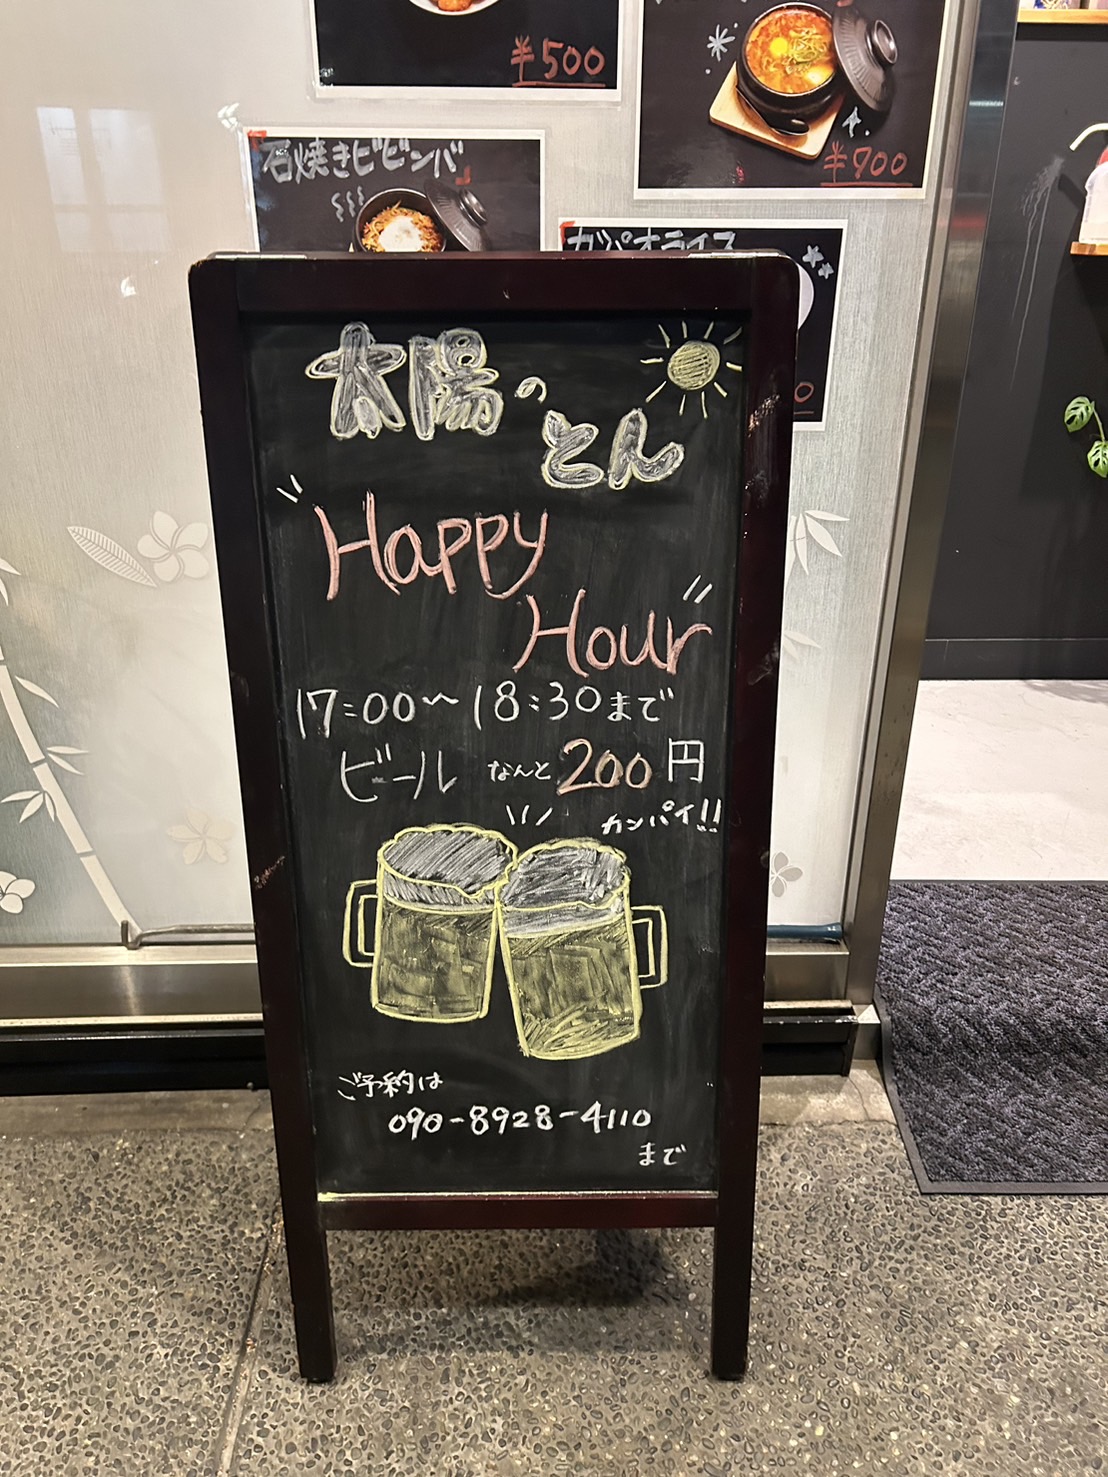 ¥500
¥900
石焼きビビンバ
ガパオライス
太陽の
とん
"Happy
Hour"
17:00〜18:30まで
ビール なんと200円
カンパイ!!
ご予約は
090-8928-4110
まで